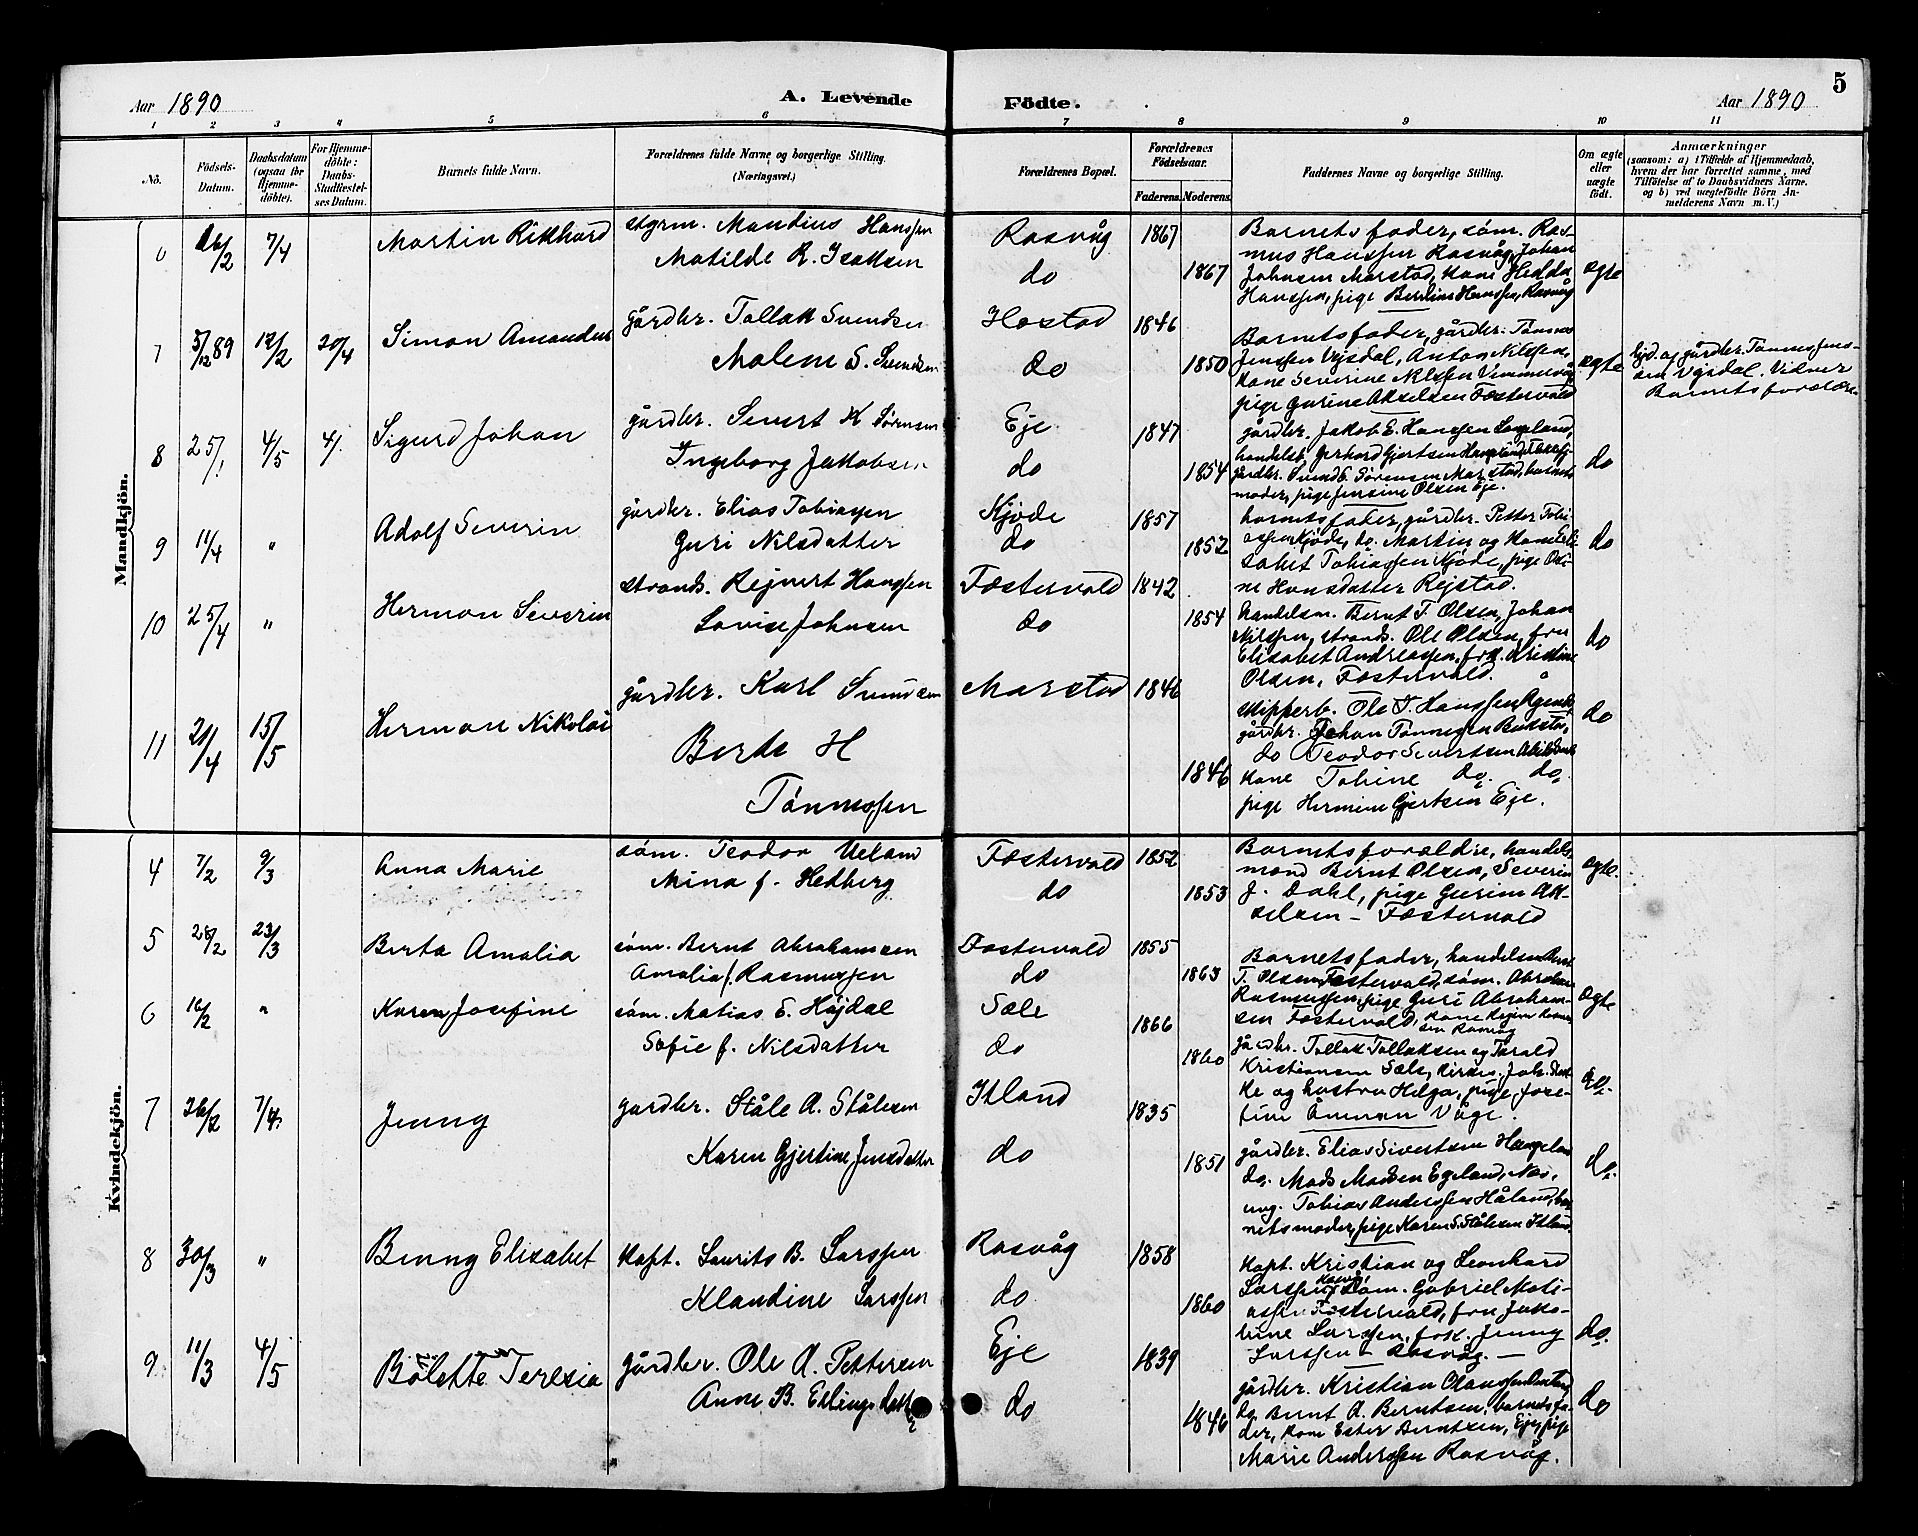 Aar 1890
A. Levende
Födte.
Aar 1890
5
1 2 3 4 5 6 7 8 9 10 11
No.
Födsels-
Datum.
Daabsdatum
(ogsaa for
Hjemme-
döbte).
For Hjemme-
döbte:
Daabs-
Stadfæstel-
ses Datum.
Barnets fulde Navn.
Forældrenes fulde Navne og borgerlige Stilling.
(Næringsvei.)
Forældrenes Bopæl.
Forældrenes
Födselsaar.
Faderens.
Moderens.
Faddernes Navne og borgerlige Stilling.
Om ægte
eller
uægte
födt.
Anmærkninger
(saasom: a) i Tilfælde af Hjemmedaab,
hvem der har forrettet samme, med
Tilföielse af to Daabsvidners Navne,
og b) ved uægtefödte Börn An-
melderens Navn m. V.)
Mandkjön.
6 26/2 7/4
Martin Rikkard
styrm. Mandius Hanssen
Matilde R. Isaksen
Rasvåg
do
1867
1867
Barnets fader, söm. Ras-
mus Hanssen Rasvåg, Johan
Johnsen Marstad, kone Hedda
Hanssen, pige Berdine Hanssen, Rasvåg
ægte
7 5/12 89 12/2 20/4
Simon Amandus
gårdbr. Tollak Svendsen
Malene S. Svendsen
Hestad
do
1846
1850
Barnets fader, gårdbr. Tönnes
Jenssen Vejsdal, Anton Nilssen,
kone Severine Nilssen
pige Gurine Akselsen Fæstervold
ægte
hjd. af gårdbr. Tönnes Jens-
sen Vejsdal. Vidner
Barnets forældre.
8 25/1 4/5 4/.
Sigurd Johan
gårdbr. Sivert K Sörensen
Ingeborg Jakobsen
Eje
do
1847
1854
gårdbr. Jakob E. Hanssen
handelsb. Gerhard Gjertsen
gårdbr. Svend E. Sörensen Marstad, barnets
moder, pige Jensine Olsen Eje.
do
9 11/4 "
Adolf Severin
gårdbr. Elias Tobiassen
Guri Nilsdatter
Kjöde
do
1857
1852
barnets fader, gårdbr. Petter Tobi-
assen Kjöde, do. Martin og kone Eli-
sabet Tobiassen Kjöde, pige Oli-
ne Hansdatter Rejstad.
do
10 25/4 "
Herman Severin
strands. Rejnert Hanssen
Lovise Johnsen
Fæstervold
do
1842
1854
handelsm. Bernt T. Olsen, Johan
Nilssen, strands. Ole Olsen, fru
Elisabet Andreassen, frk. Kristine
Olsen, Fæstervold.
do
11 21/4 15/5
Herman Nikolai
gårdbr. Karl Svendsen
Berte H
Tönnessen
Marstad
1846
1846
skipperb. Ole T. Hanssen
gårdbr. Johan Tönnessen
do Teodor Sivertsen
kone Tobine do. do.
pige Hermine Gjertsen Eje.
do
Kvindekjön.
4 7/2 9/3
Anna Marie
söm. Teodor Ueland
Mina f. Hedberg
Fæstervold
do
1852
1853
Barnets forældre, handels-
mand Bernt Olsen, Severin
J. Dahl, pige Gurine Ak-
selsen – Fæstervold
ægte.
5 28/2 23/3
Berta Amalia
söm. Bernt Abrahamsen
Amalia f. Rasmussen
Fæstervold
do
1855
1863
Barnets fader, handelsm Bernt
T. Olsen Fæstervold, söm. Abraham
Rasmussen, pige Guri Abraham-
sen Fæstervold, kone Regine Rasmus-
sen Rasvåg
ægte
6 16/2 "
Karen Josefine
söm. Matias E. Höjdal
Sofie f. Nilsdatter
Sæle
do
1866
1860
gårdbr. Tollak Tollaksen og Torald
Kristiansen Sæle, kirkes. Joh.
ke og hustru Helga, pige, Jose-
fine Åmnan Våge.
do.
7 26/2 7/4.
Jenny
gardbr. Ståle A. Stålesen
Karen Gjertine Jensdatter
Itland
do
1835
1851
gårdbr. Elias Sivertsen Haugeland
do. Mads Madsen Egeland,
ung. Tobias Anderssen Håland, bar-
nets moder, pige Karen S. Stålesen Itland
do.
8 30/3 "
Benny Elizabet
kapt. Laurits B. Larssen
Klaudine Larssen
Rasvåg
do
1858
1860
Kapt. Kristian og Leonhard
Larssen Rasvåg, söm. Gabriel Mati-
assen Fæstervold, fru Jako-
bine Larssen, frk. Jenny
Larssen – Rasvåg. –
do.
9 11/3 4/5
Bolette Teresia
gårdbr. Ole A. Pettersen
Anne B. Ellingsdatter
Eje
do
1839
1846
gårdbr. Kristian Olaussen
do. Bernt A. Berntsen, barnets fa-
der, kone Ester Berntsen, Eje, pige
Marie Anderssen Rasvåg.
do